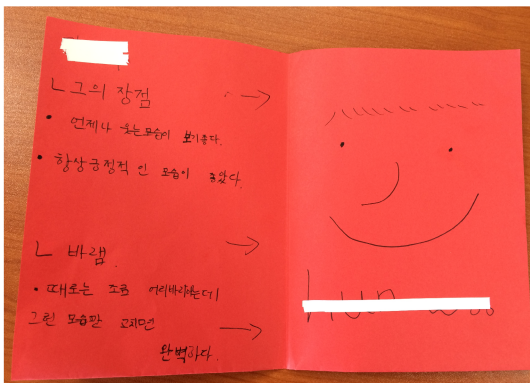 ㄴ그의 장점
• 언제나 웃는모습이 보기좋다.
• 항상긍정적 인 모습이 좋았다.
ㄴ 바램.
• 때로는 조금 어리바리하는데
그런 모습만 고치면
완벽하다.